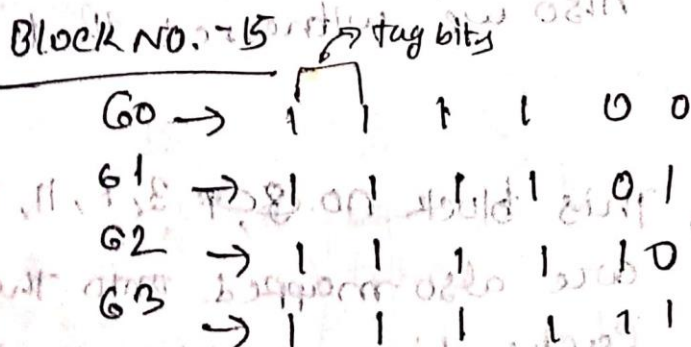 Block No. - 15 → tag bits
60 → 1 1 1 1 0 0
61 → 1 1 1 1 0 1
62 → 1 1 1 1 1 0
63 → 1 1 1 1 1 1